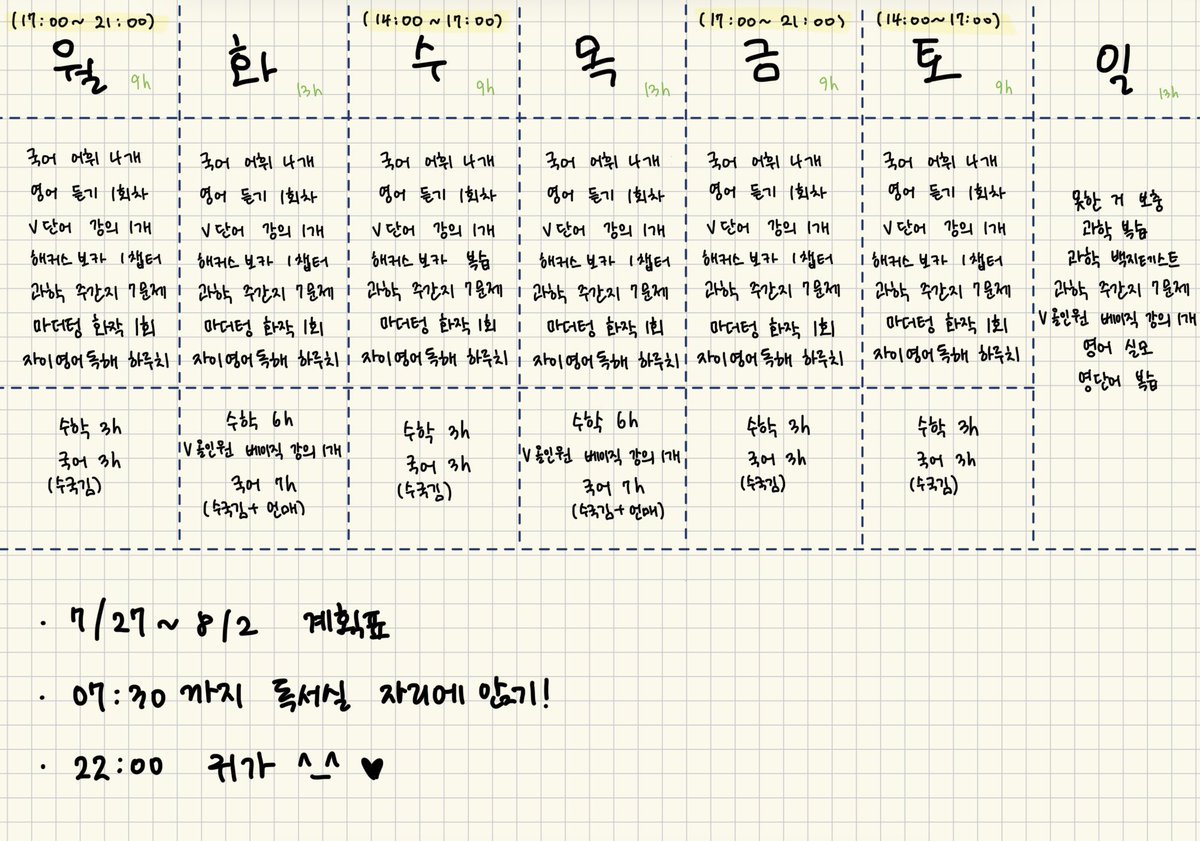 (17:00~ 21:00)
월
9h
국어 어휘 4개
영어 듣기 1회차
V단어 강의 1개
해커스보카 1챕터
과학 주간지 7문제
마더텅 화작 1회
자이영어독해 하루치
수학 3h
국어 3h
(수국김)
화
13h
국어 어휘 4개
영어 듣기 1회차
V단어 강의 1개
해커스보카 1챕터
과학 주간지 7문제
마더텅 화작 1회
자이영어독해 하루치
수학 6h
V올인원 베이직 강의 1개
국어 7h
(수국김+ 언매)
(14:00 ~17:00)
수
9h
국어 어휘 4개
영어 듣기 1회차
V단어 강의 1개
해커스보카 복습
과학 주간지 7문제
마더텅 화작 1회
자이영어독해 하루치
수학 3h
국어 3h
(수국김)
목
13h
국어 어휘 4개
영어 듣기 1회차
V단어 강의 1개
해커스보카 1챕터
과학 주간지 7문제
마더텅 화작 1회
자이영어독해 하루치
수학 6h
V올인원 베이직 강의 1개
국어 7h
(수국김+ 언매)
(17:00~ 21:00)
금
9h
국어 어휘 4개
영어 듣기 1회차
V단어 강의 1개
해커스보카 1챕터
과학 주간지 7문제
마더텅 화작 1회
자이영어독해 하루치
수학 3h
국어 3h
(수국김)
(14:00~17:00)
토
9h
국어 어휘 4개
영어 듣기 1회차
V단어 강의 1개
해커스보카 1챕터
과학 주간지 7문제
마더텅 화작 1회
자이영어독해 하루치
수학 3h
국어 3h
(수국김)
일
13h
못한 거 보충
과학 복습
과학 백지테스트
과학 주간지 7문제
V올인원 베이직 강의 1개
영어 실모
영단어 복습
· 7/27~ 8/2 계획표
· 07:30 까지 독서실 자리에 앉기!
· 22:00 귀가 ^_^ ♥